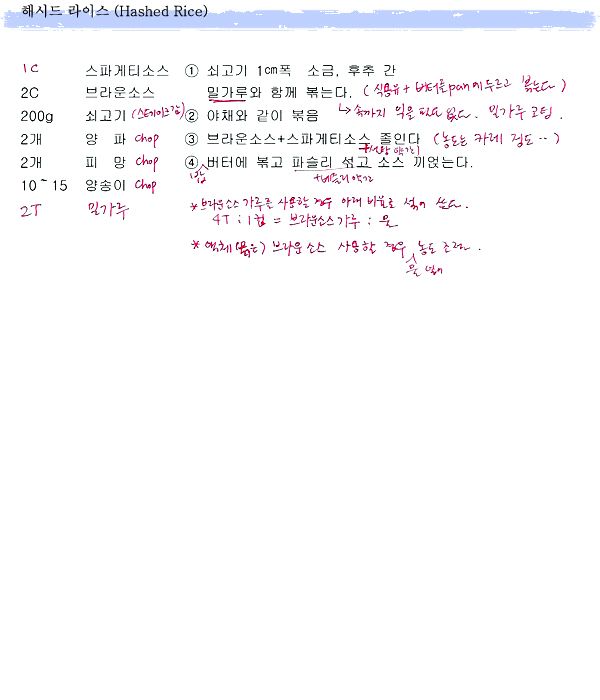 해시드 라이스 (Hashed Rice)
1C 스파게티소스 ① 쇠고기 1cm폭 소금, 후추 간
2C 브라운소스 밀가루와 함께 볶는다. (식용유 + 버터를 pan에 두르고 볶는다)
200g 쇠고기 (스테이크감) ② 야채와 같이 볶음 → 속까지 익을 필요 없다. 밀가루 코팅.
2개 양 파 chop ③ 브라운소스+스파게티소스 졸인다 (농도는 카레 정도..)
+설탕 약간
2개 피 망 chop ④ 밥 버터에 볶고 파슬리 섞고 소스 끼얹는다.
10~15 양송이 chop
2T 밀가루 *브라운소스 가루를 사용할 경우 아래 비율로 섞어 쓴다.
4T : 1컵 = 브라운소스가루 : 물
* 액체(묽은) 브라운소스 사용할 경우 농도 조절.
물 넣어